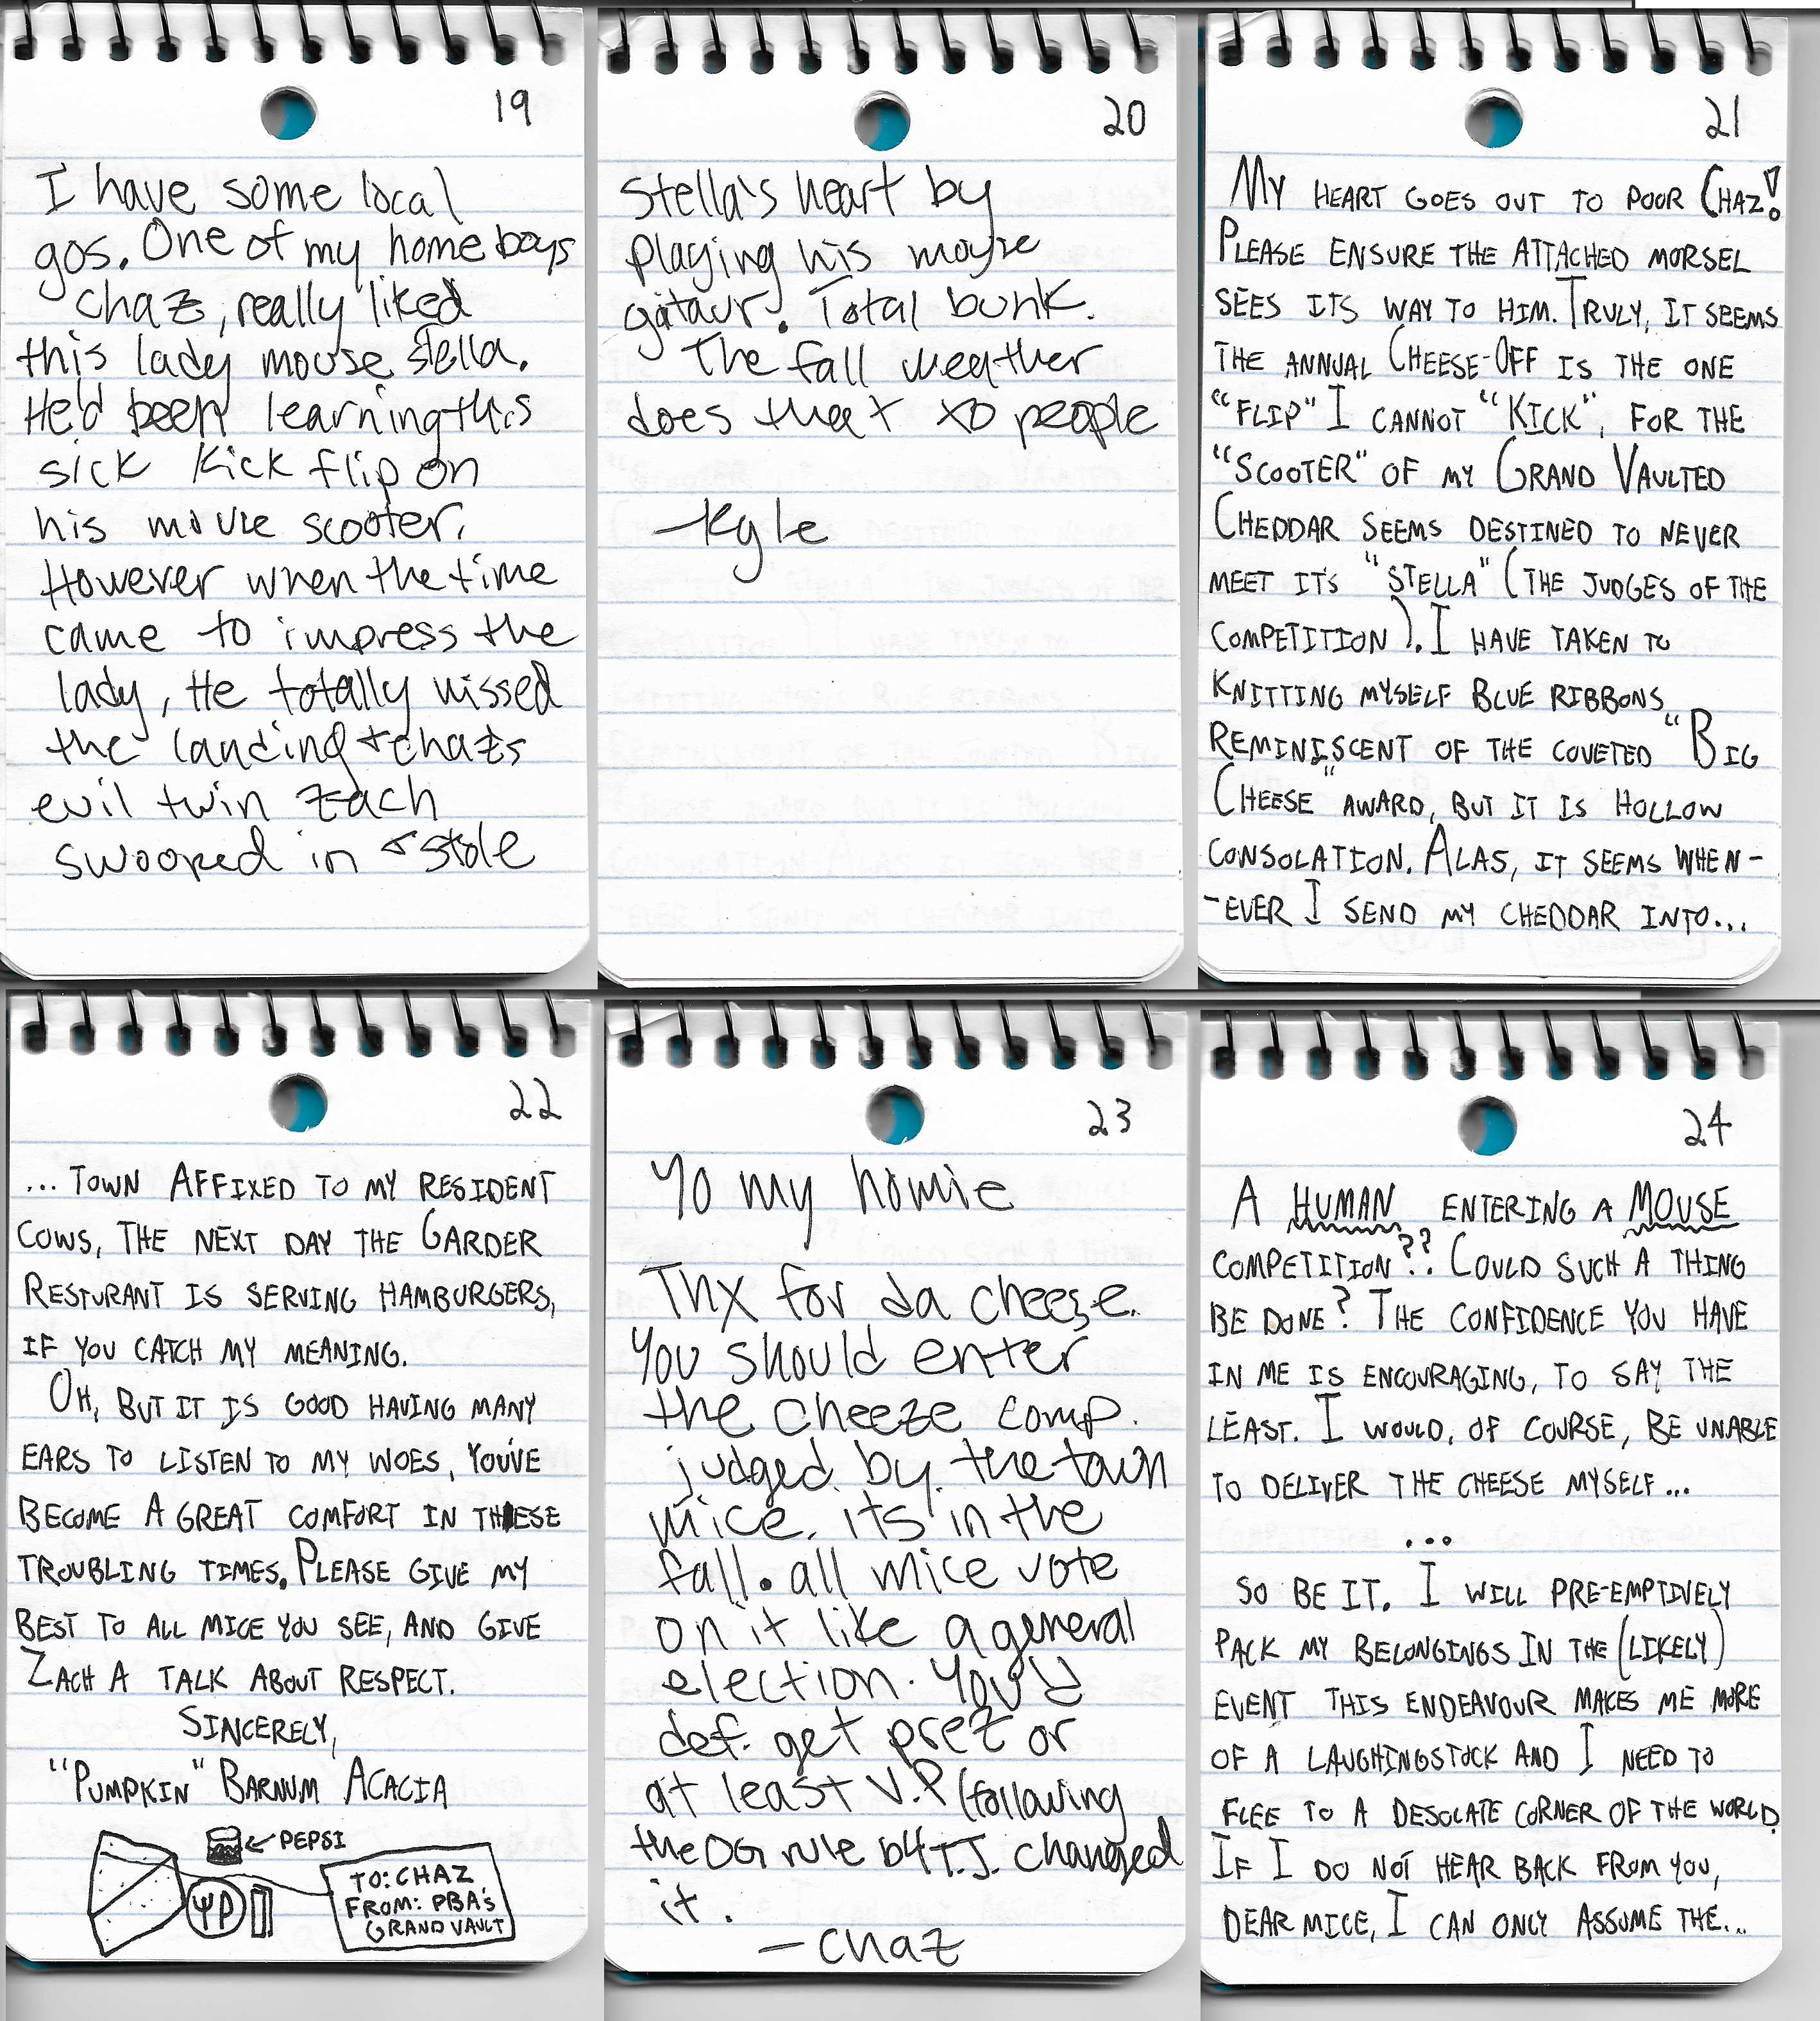 19
I have some local
gos. One of my home boys
Chaz, really liked
this lady mouse stella.
He'd been learning this
sick kick flip on
his mouse scooter.
However when the time
came to impress the
lady, He totally missed
the landing + chazs
evil twin Zach
swooped in + stole
20
Stella's heart by
playing his mouse
gitaur. Total bunk.
The fall weather
does that to people
-Kyle
21
MY HEART GOES OUT TO POOR CHAZ!
PLEASE ENSURE THE ATTACHED MORSEL
SEES ITS WAY TO HIM. TRULY, IT SEEMS
THE ANNUAL CHEESE-OFF IS THE ONE
"FLIP" I CANNOT "KICK", FOR THE
"SCOOTER" OF MY GRAND VAULTED
CHEDDAR SEEMS DESTINED TO NEVER
MEET IT'S "STELLA" (THE JUDGES OF THE
COMPETITION). I HAVE TAKEN TO
KNITTING MYSELF BLUE RIBBONS
REMINISCENT OF THE COVETED "BIG
CHEESE" AWARD, BUT IT IS HOLLOW
CONSOLATION. ALAS, IT SEEMS WHEN-
-EVER I SEND MY CHEDDAR INTO...
22
... TOWN AFFIXED TO MY RESIDENT
COWS, THE NEXT DAY THE GARDER
RESTURANT IS SERVING HAMBURGERS,
IF YOU CATCH MY MEANING.
OH, BUT IT IS GOOD HAVING MANY
EARS TO LISTEN TO MY WOES, YOU'VE
BECOME A GREAT COMFORT IN THESE
TROUBLING TIMES. PLEASE GIVE MY
BEST TO ALL MICE YOU SEE, AND GIVE
ZACH A TALK ABOUT RESPECT.
SINCERELY,
"PUMPKIN" BARNUM ACACIA
PEPSI
TO: CHAZ
FROM: PBA'S
GRAND VAULT
23
Yo my homie
Thx for da cheese.
You should enter
the cheeze comp.
judged by the town
mice. its in the
fall. all mice vote
on it like a general
election. You'd
def. get prez or
at least V.P (following
the OG rule b4 T.J. changed
it.
- Chaz
24
A HUMAN ENTERING A MOUSE
COMPETITION?? COULD SUCH A THING
BE DONE? THE CONFIDENCE YOU HAVE
IN ME IS ENCOURAGING, TO SAY THE
LEAST. I WOULD, OF COURSE, BE UNABLE
TO DELIVER THE CHEESE MYSELF...
...
SO BE IT. I WILL PRE-EMPTIVELY
PACK MY BELONGINGS IN THE (LIKELY)
EVENT THIS ENDEAVOUR MAKES ME MORE
OF A LAUGHINGSTOCK AND I NEED TO
FLEE TO A DESOLATE CORNER OF THE WORLD.
IF I DO NOT HEAR BACK FROM YOU,
DEAR MICE, I CAN ONLY ASSUME THE...